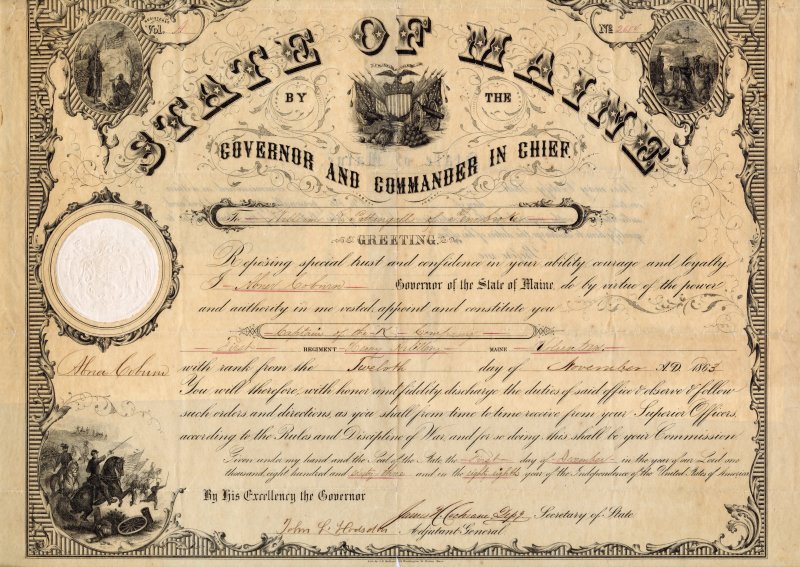 Vol.
No 
STATE OF MAINE
BY THE
GOVERNOR AND COMMANDER IN CHIEF.
To William R. Pattangall of Pembroke
GREETING.
Reposing special trust and confidence in your ability, courage and loyalty
I Abner Coburn Governor of the State of Maine, do by virtue of the power
and authority in me vested, appoint and constitute you
Captain of the K Company
First REGIMENT Heavy Artillery MAINE Volunteers
Abner Coburn
with rank from the Twelfth day of November A.D. 1863
You will therefore, with honor and fidelity discharge the duties of said office & observe & follow
such orders and directions, as you shall from time to time receive from your Superior Officers
according to the Rules and Discipline of War, and for so doing this shall be your Commission
Given under my hand and the Seal of the State the First day of December in the year of our Lord one
thousand eight hundred and sixty three and in the eighty eighth year of the Independence of the United States of America
By His Excellency the Governor
Secretary of State.
John L. Hodsdon Adjutant General